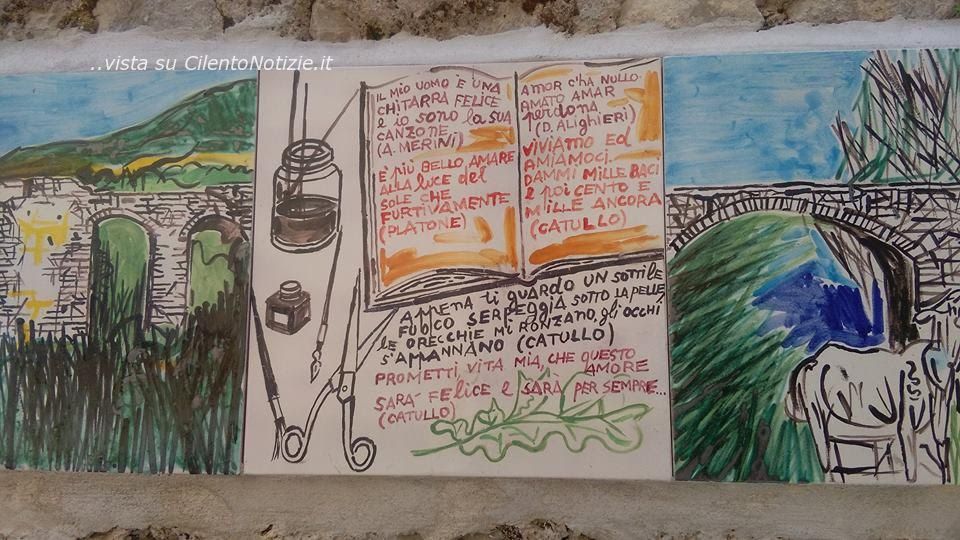 ..vista su CilentoNotizie.it
IL MIO UOMO È UNA
CHITARRA FELICE
E io SONO la SUA
CANZONE
(A. MERINI)
E' PIÙ BELLO AMARE
ALLA luce del
SOLE CHE
FURTIVAMENTE
(PLATONE)
AMOR C'HA NULLO
AMATO AMAR
perdona
(D. ALIGHIERI)
VIVIAMO ED
AMIAMOCI.
DAMMI MILLE BACI
E poi CENTO E
MILLE ANCORA
(CATULLO)
APPENA ti GUARDO UN SOTTILE
FUOCO SERPEGGIA SOTTO LA PELLE
lE ORECCHIE MI RONZANO, gli OCCHI
S'AMANNANO (CATULLO)
PROMETTI, VITA MIA, CHE QUESTO
AMORE
SARA' FElicE E SARÀ PER SEMPRE...
(CATULLO)